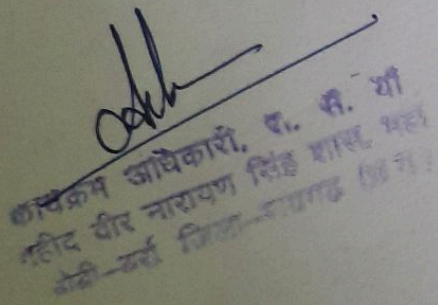 कार्यक्रम अधिकारी, रा. से. यो
शहीद वीर नारायण सिंह शास. महा
जिला-रायगढ़ (छ.ग.)